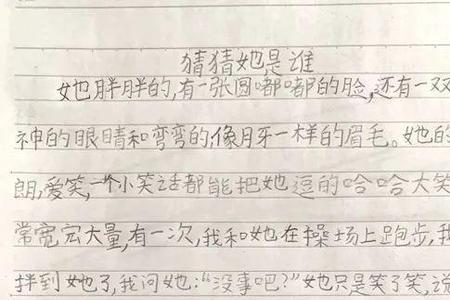 猜猜她是谁
她胖胖的,有一张圆嘟嘟的脸,还有一双
神的眼睛和弯弯的,像月牙一样的眉毛。她的
朗,爱笑,一个小笑话都能把她逗的哈哈大笑
常宽宏大量,有一次,我和她在操场上跑步,我
拌到她了,我问她:“没事吧?”她只是笑了笑,说